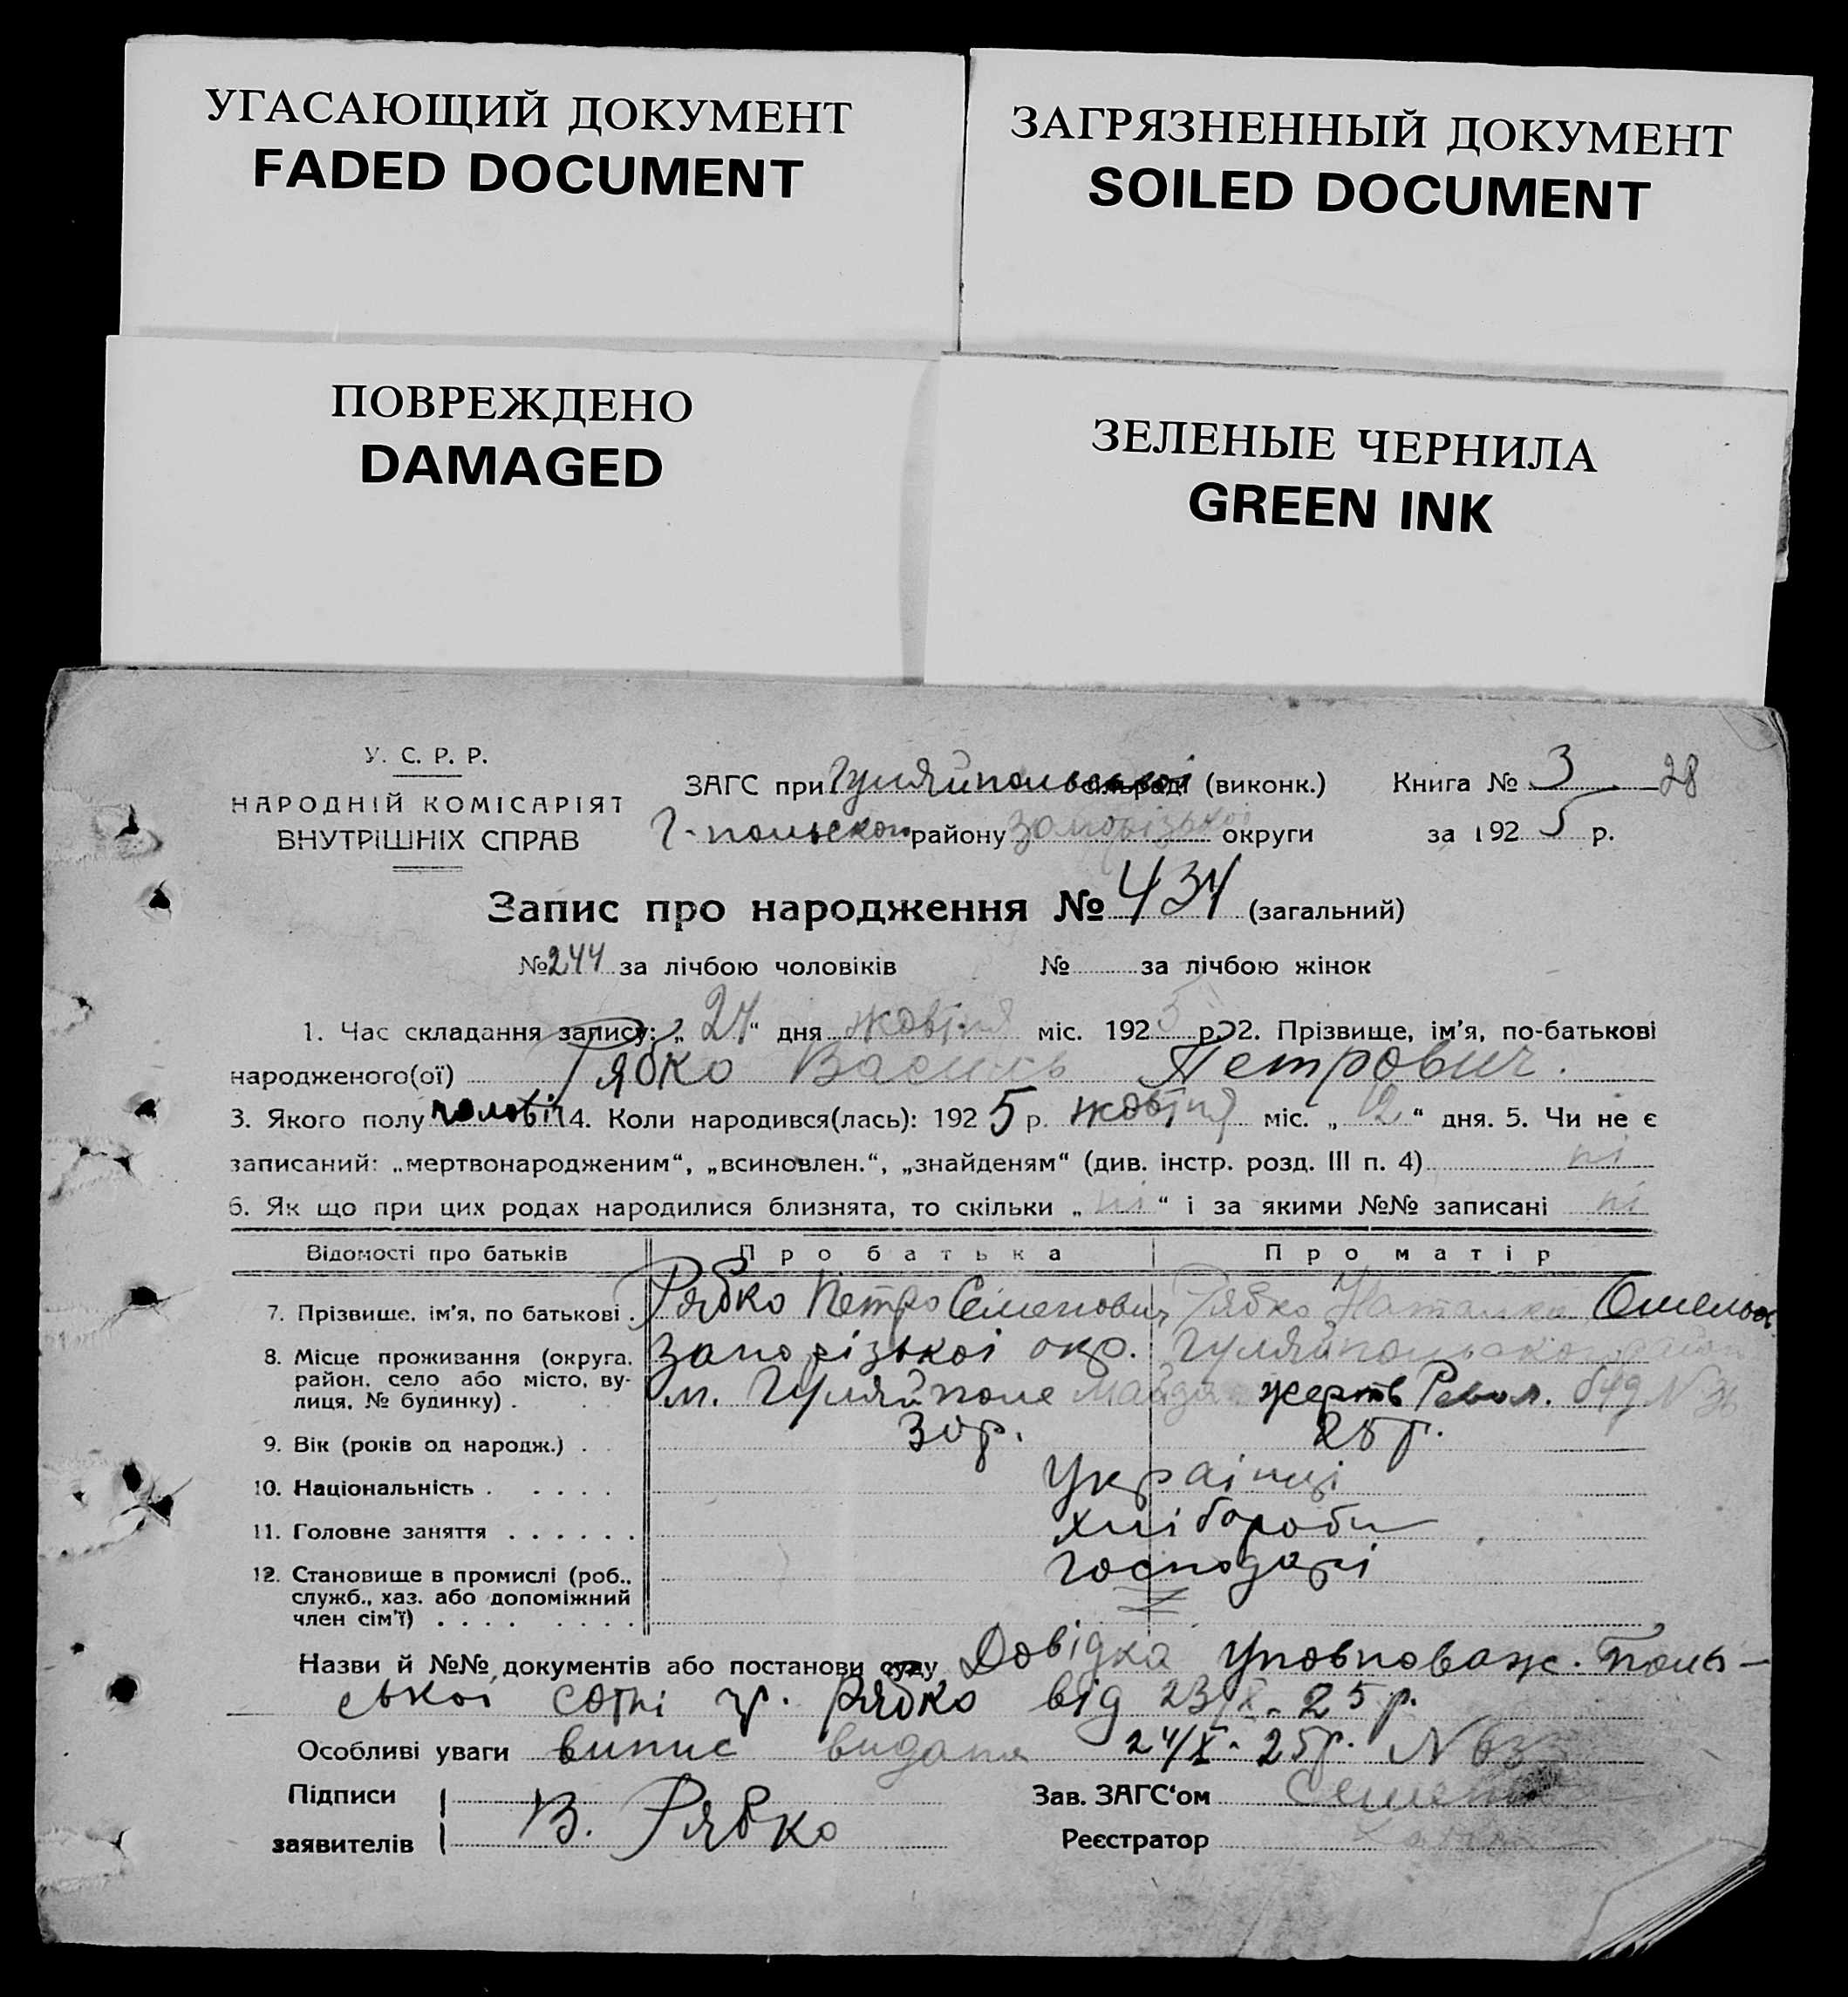 УГАСАЮЩИЙ ДОКУМЕНТ
FADED DOCUMENT
ЗАГРЯЗНЕННЫЙ ДОКУМЕНТ
SOILED DOCUMENT
ПОВРЕЖДЕНО
DAMAGED
ЗЕЛЕНЫЕ ЧЕРНИЛА
GREEN INK
У. С. Р. Р.
НАРОДНІЙ КОМІСАРІЯТ
ВНУТРІШНІХ СПРАВ
ЗАГС при Гуляйпольської сільраді (виконк.)
Г-польского району Запорізької округи
Книга № 3 28
за 1925 р.
Запис про народження № 434 (загальний)
№ 244 за лічбою чоловіків № за лічбою жінок
1. Час складання запису: „24“ дня жовтня міс. 1925 р. 2. Прізвище, ім'я, по-батькові
народженого(ої) Рябко Василь Петрович.
3. Якого полу чоловіч 4. Коли народився(лась): 1925 р. жовтня міс. „12“ дня. 5. Чи не є
записаний: „мертвонародженим“, „всиновлен.“, „знайденям“ (див. інстр. розд. III п. 4) ні
6. Як що при цих родах народилися близнята, то скільки „ні“ і за якими №№ записані ні
Відомості про батьків Про батька Про матір
7. Прізвище, ім'я, по батькові . Рябко Петро Семенович Рябко Наталка Омельов
8. Місце проживання (округа, район, село або місто, вулиця, № будинку) . Запорізької окр. Гуляйпольського район
м. Гуляйполе Майдан жертв Револ. буд №
9. Вік (років од народж.) . 30 р. 25 р.
10. Національність . . . . . Українці
11. Головне заняття . . . . . . Хлібороби
12. Становище в промислі (роб., служб., хаз. або допоміжний член сім'ї) . . . . . . . . Господарі
Назви й №№ документів або постанови суду Довідка уповноваж. Поль-
ської сотні гр. Рябко від 23/X-25 р.
Особливі уваги випис видана 24/X-25р. N 633
Підписи
заявителів В. Рябко
Зав. ЗАГС'ом
Реєстратор